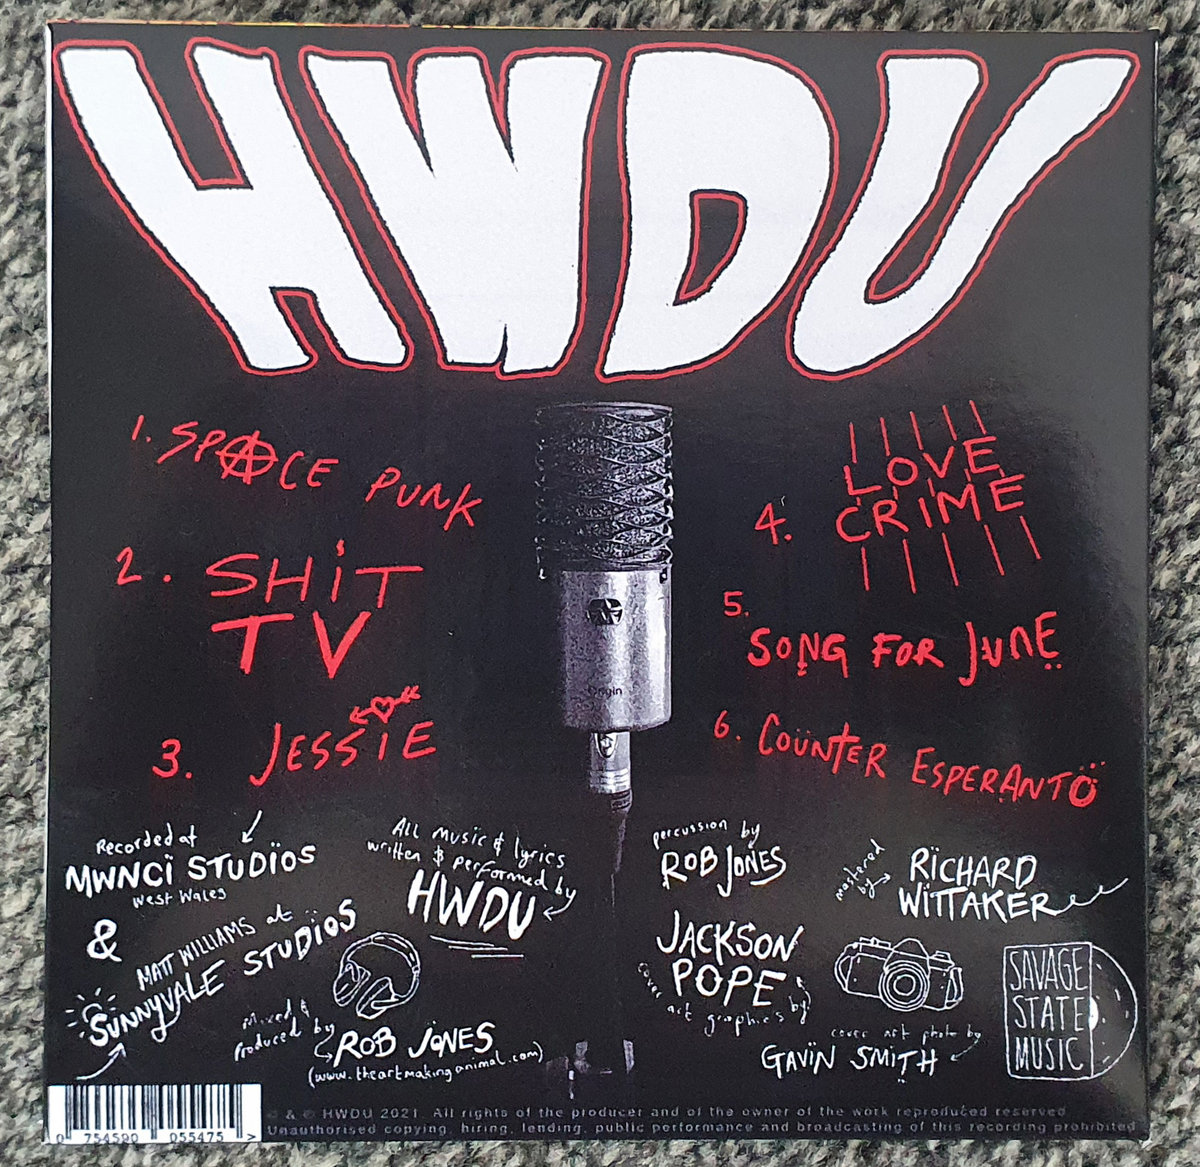 HWDU
1. SPACE PUNK
2. SHiT
TV
3. JESSiE
4. LOVE
CRIME
5.
SONG FOR JUNE
6. COUNTER ESPERANTO
Recorded at
MWNCi STUDiOS
West Wales
&
MATT WILLIAMS at
SUNNYVALE STUDiOS
All music & lyrics
written & performed by
HWDU
Mixed &
Produced by
ROB JONES
(www.theartmakinganimal.com)
percussion by
ROB JONES
mastered
by
RiCHARD
WiTTAKER
JACKSON
POPE
cover art graphics by
cover art photo by
GAViN SMiTH
SAVAGE
STATE
MUSIC
Origin
0 754590 055475 >
© & ℗ HWDU 2021. All rights of the producer and of the owner of the work reproduced reserved
Unauthorised copying, hiring, lending, public performance and broadcasting of this recording prohibited